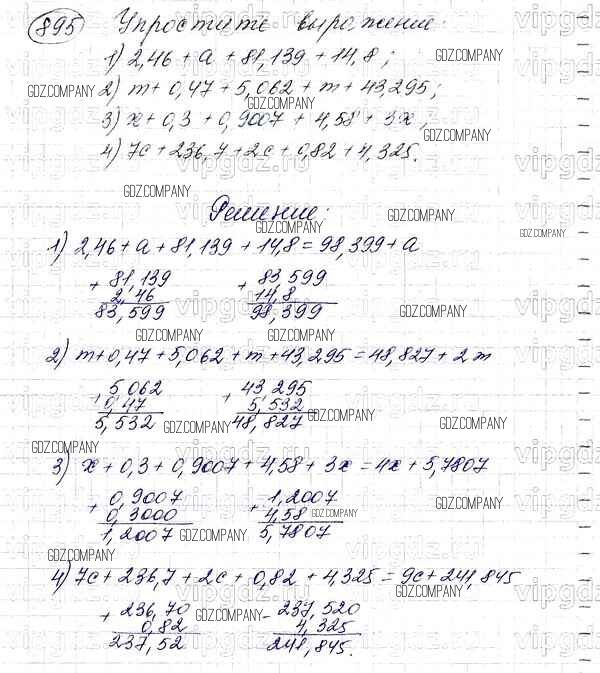 895 Упростите выражение:
1) 2,46 + a + 81,139 + 14,8;
2) m + 0,47 + 5,062 + m + 43,295;
3) x + 0,3 + 0,9007 + 4,58 + 3x;
4) 7c + 236,7 + 2c + 0,82 + 4,325.
Решение:
1) 2,46 + a + 81,139 + 14,8 = 98,399 + a
+ 81,139 + 83,599
2,46 14,8
83,599 98,399
2) m + 0,47 + 5,062 + m + 43,295 = 48,827 + 2m
+ 5,062 + 43,295
0,47 5,532
5,532 48,827
3) x + 0,3 + 0,9007 + 4,58 + 3x = 4x + 5,7807
+ 0,9007 + 1,2007
0,3000 4,58
1,2007 5,7807
4) 7c + 236,7 + 2c + 0,82 + 4,325 = 9c + 241,845
+ 236,70 - 237,520
0,82 4,325
237,52 241,845.
GDZ.COMPANY
vipgdz.ru